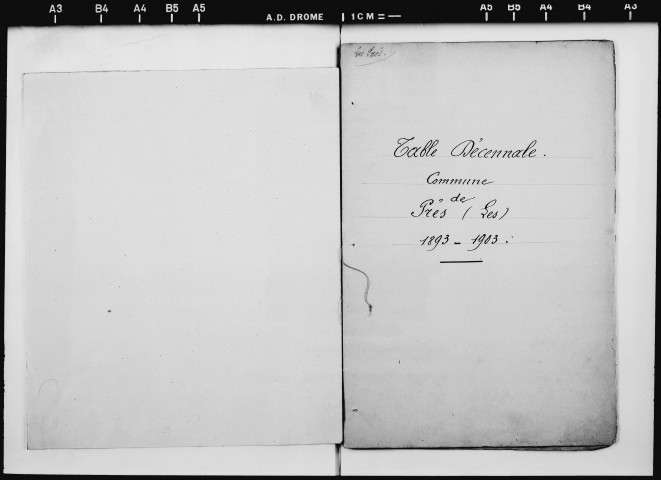 A3 B4 A4 B5 A5 A.D. DROME 1 CM A5 B5 A4 B4 A3
Les Prés.
Table Décennale.
Commune
de
Prés (Les)
1893 - 1903.